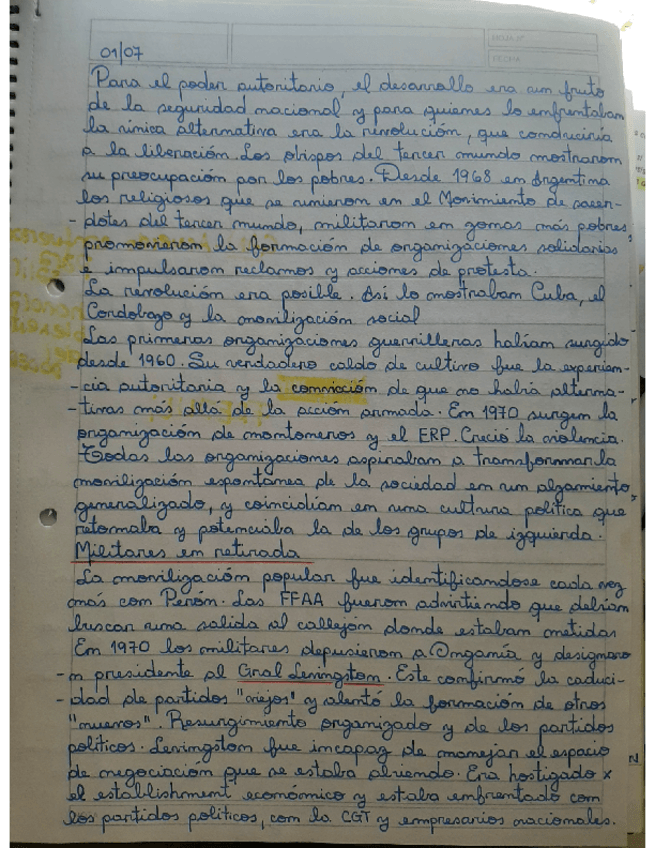 HOJA Nº
FECHA
01/07
Para el poder autoritario, el desarrollo era un fruto
de la seguridad nacional y para quienes lo enfrentaban
la única alternativa era la revolución, que conduciría
a la liberación. Los obispos del tercer mundo mostraron
su preocupación por los pobres. Desde 1968 en Argentina
los religiosos que se unieron en el Movimiento de sacer-
-dotes del tercer mundo, militaron en zonas más pobres,
promovieron la formación de organizaciones solidarias
e impulsaron reclamos y acciones de protesta.
La revolución era posible. Así lo mostraban Cuba, el
Cordobazo y la movilización social
Las primeras organizaciones guerrilleras habían surgido
desde 1960. Su verdadero caldo de cultivo fue la experien-
-cia autoritaria y la convicción de que no había alterna-
-tivas más allá de la acción armada. En 1970 surgen la
organización de montoneros y el ERP. Creció la violencia.
Todas las organizaciones aspiraban a transformar la
movilización espontanea de la sociedad en un alzamiento
generalizado, y coincidían en una cultura política que
retomaba y potenciaba la de los grupos de izquierda.
Militares en retirada
La movilización popular fue identificandose cada vez
más con Perón. Las FFAA fueron advirtiendo que debían
buscar una salida al callejón donde estaban metidas
En 1970 los militares depusieron a Onganía y designaro
-n presidente al Gral Levingston. Este confirmó la caduci-
-dad de partidos "viejos" y alentó la formación de otros
"nuevos". Resurgimiento organizado y de los partidos
políticos. Levingston fue incapaz de manejar el espacio
de negociación que se estaba abriendo. Era hostigado x
el establishment económico y estaba enfrentado con
los partidos políticos, con la CGT y empresarios nacionales.